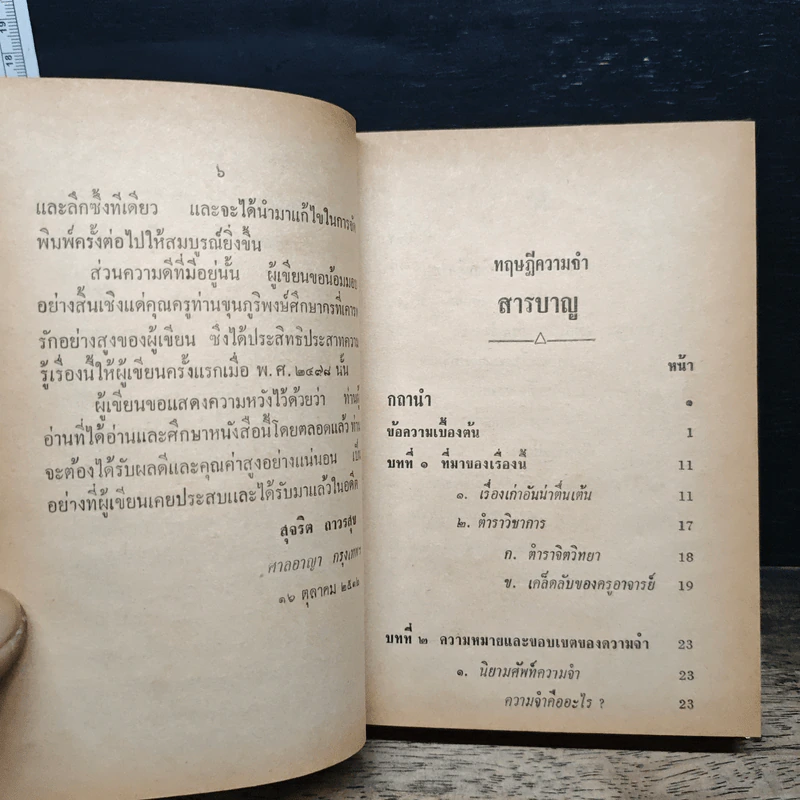 19
18
๖
และลึกซึ้งทีเดียว และจะได้นำมาแก้ไขในการจัด
พิมพ์ครั้งต่อไปให้สมบูรณ์ยิ่งขึ้น
ส่วนความดีที่มีอยู่นั้น ผู้เขียนขอน้อมมอบ
อย่างสิ้นเชิงแด่คุณครูท่านขุนภูริพงษ์ศึกษากรที่เคารพ
รักอย่างสูงของผู้เขียน ซึ่งได้ประสิทธิประสาทความ
รู้เรื่องนี้ให้ผู้เขียนครั้งแรกเมื่อ พ.ศ.๒๔๗๘ นั้น
ผู้เขียนขอแสดงความหวังไว้ด้วยว่า ท่านผู้
อ่านที่ได้อ่านและศึกษาหนังสือนี้โดยตลอดแล้ว ท่าน
จะต้องได้รับผลดีและคุณค่าสูงอย่างแน่นอน เป็น
อย่างที่ผู้เขียนเคยประสบและได้รับมาแล้วในอดีต
สุจริต ถาวรสุข
ศาลอาญา กรุงเทพฯ
๑๖ ตุลาคม
ทฤษฎีความจำ
สารบาญ
หน้า
กถานำ ๑
ข้อความเบื้องต้น 1
บทที่ ๑ ที่มาของเรื่องนี้ 11
๑. เรื่องเก่าอันน่าตื่นเต้น 11
๒. ตำราวิชาการ 17
ก. ตำราจิตวิทยา 18
ข. เคล็ดลับของครูอาจารย์ 19
บทที่ ๒ ความหมายและขอบเขตของความจำ 23
๑. นิยามศัพท์ความจำ 23
ความจำคืออะไร ? 23